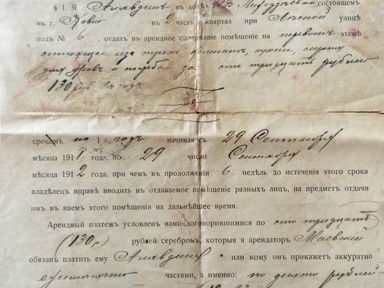 § 1. Я въ домѣ состоящемъ
въ г. Ковнѣ въ 2 части квартал при улицѣ
подъ № 6, отдалъ въ арендное содержаніе помѣщеніе на первомъ этажѣ
состоящее изъ трехъ комнатъ, кухни,
за сто тридцать рублей
130 руб. въ годъ
срокомъ на 1 годъ начиная съ 29 Сентября
мѣсяца 1911 года, по 29 число Сентября
мѣсяца 1912 года, при чемъ въ продолженіи 6 недѣль до истеченія этого срока
владѣлецъ вправѣ вводить въ отдаваемое помѣщеніе разныхъ лицъ, на предметъ отдачи
имъ въ наемъ этого помѣщенія на дальнѣйшее время.
Арендный платежъ условленъ нами договорившимися по сто тридцать
(130) рублей серебромъ, которыя я арендаторъ Маевскій
обязанъ платить ему или кому онъ прикажетъ аккуратно
частями, а именно: по десяти рублей